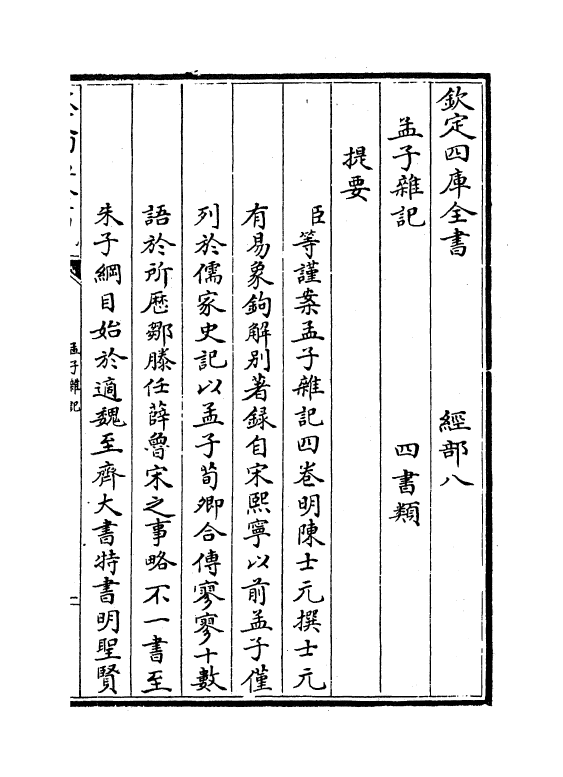 欽定四庫全書　經部八
孟子雜記　四書類
提要
臣等謹案孟子雜記四卷明陳士元撰士元
有易象鉤解别著録自宋熙寧以前孟子僅
列於儒家史記以孟子荀卿合傳寥寥十數
語於所歴鄒滕任薛魯宋之事略不一書至
朱子綱目始於適魏至齊大書特書明聖賢
孟子雜記